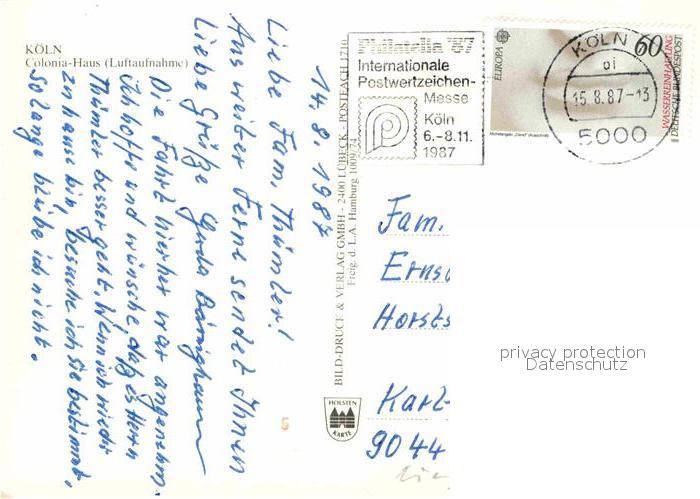 KÖLN
Colonia-Haus (Luftaufnahme)
14. 8. 1987
Liebe Fam. Thümler!
Aus weiter Ferne sendet Ihnen
Liebe Grüße Gerda
Die Fahrt hierher war angenehm.
Ich hoffe und wünsche, daß es Herrn
Thümler besser geht. Wenn ich wieder
zu haus bin, besuche ich Sie bestimmt,
so lange bleibe ich nicht.
BILD-DRUCK & VERLAG GMBH - 2400 LÜBECK POSTFACH 1710
Freig. d. L.A. Hamburg 1009/74
HOLSTEN
KARTE
Philatelia '87
Internationale
Postwertzeichen-
Messe
Köln
6.-8.11.
1987
EUROPA
60
WASSERREINHALTUNG
DEUTSCHE BUNDESPOST
KÖLN
15.8.87-13
5000
Fam.
Erns
Horsts
Karl-
9044
privacy protection
Datenschutz